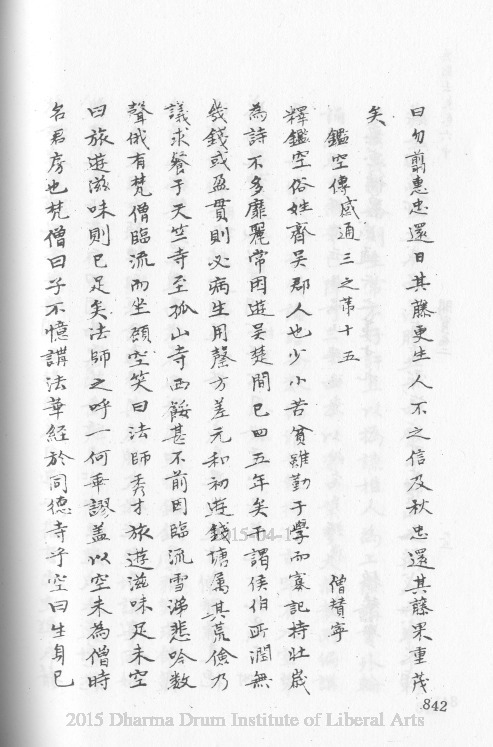 曰勿翦惠忠還日其藤更生人不之信及秋忠還其藤果重茂
矣
鑑空傳感通三之第十五　僧贊寧
釋鑑空俗姓齊吳郡人也少小苦貧雖勤于學而寡記持壯歲
為詩不多靡麗常困遊吳楚間已四五年矣干謁侯伯所潤無
幾錢或盈貫則必病生用罄方差元和初遊錢塘属其荒儉乃
議求餐于天竺寺至孤山寺西餒甚不前因臨流雪涕悲吟数
聲俄有梵僧臨流而坐顧空笑曰法師秀才旅遊滋味足未空
曰旅遊滋味則已足矣法師之呼一何乖謬盖以空未為僧時
名君房也梵僧曰子不憶講法華經於同德寺乎空曰生身已
842
2015-04-1
2015 Dharma Drum Institute of Liberal Arts